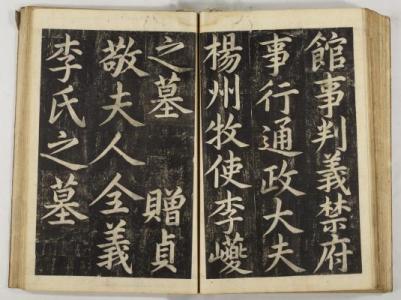 館事判義禁府
事行通政大夫
楊州牧使李𡿖
之墓 贈貞
敬夫人全義
李氏之墓